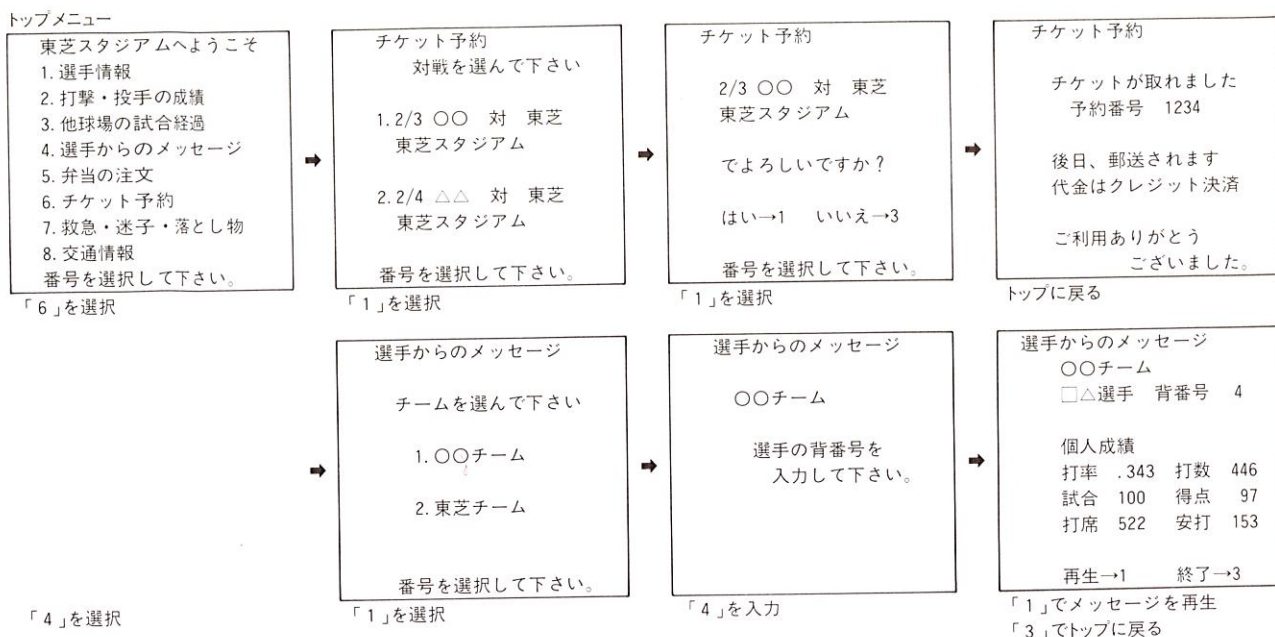 トップメニュー
東芝スタジアムへようこそ
1. 選手情報
2. 打撃・投手の成績
3. 他球場の試合経過
4. 選手からのメッセージ
5. 弁当の注文
6. チケット予約
7. 救急・迷子・落とし物
8. 交通情報
番号を選択して下さい。
「6」を選択
➡
チケット予約
対戦を選んで下さい
1. 2/3 〇〇 対 東芝
東芝スタジアム
2. 2/4 △△ 対 東芝
東芝スタジアム
番号を選択して下さい。
「1」を選択
➡
チケット予約
2/3 〇〇 対 東芝
東芝スタジアム
でよろしいですか？
はい→1 いいえ→3
番号を選択して下さい。
「1」を選択
➡
チケット予約
チケットが取れました
予約番号 1234
後日、郵送されます
代金はクレジット決済
ご利用ありがとう
ございました。
トップに戻る
「4」を選択
➡
選手からのメッセージ
チームを選んで下さい
1. 〇〇チーム
2. 東芝チーム
番号を選択して下さい。
「1」を選択
➡
選手からのメッセージ
〇〇チーム
選手の背番号を
入力して下さい。
「4」を入力
➡
選手からのメッセージ
〇〇チーム
□△選手 背番号 4
個人成績
打率 .343 打数 446
試合 100 得点 97
打席 522 安打 153
再生→1 終了→3
「1」でメッセージを再生
「3」でトップに戻る